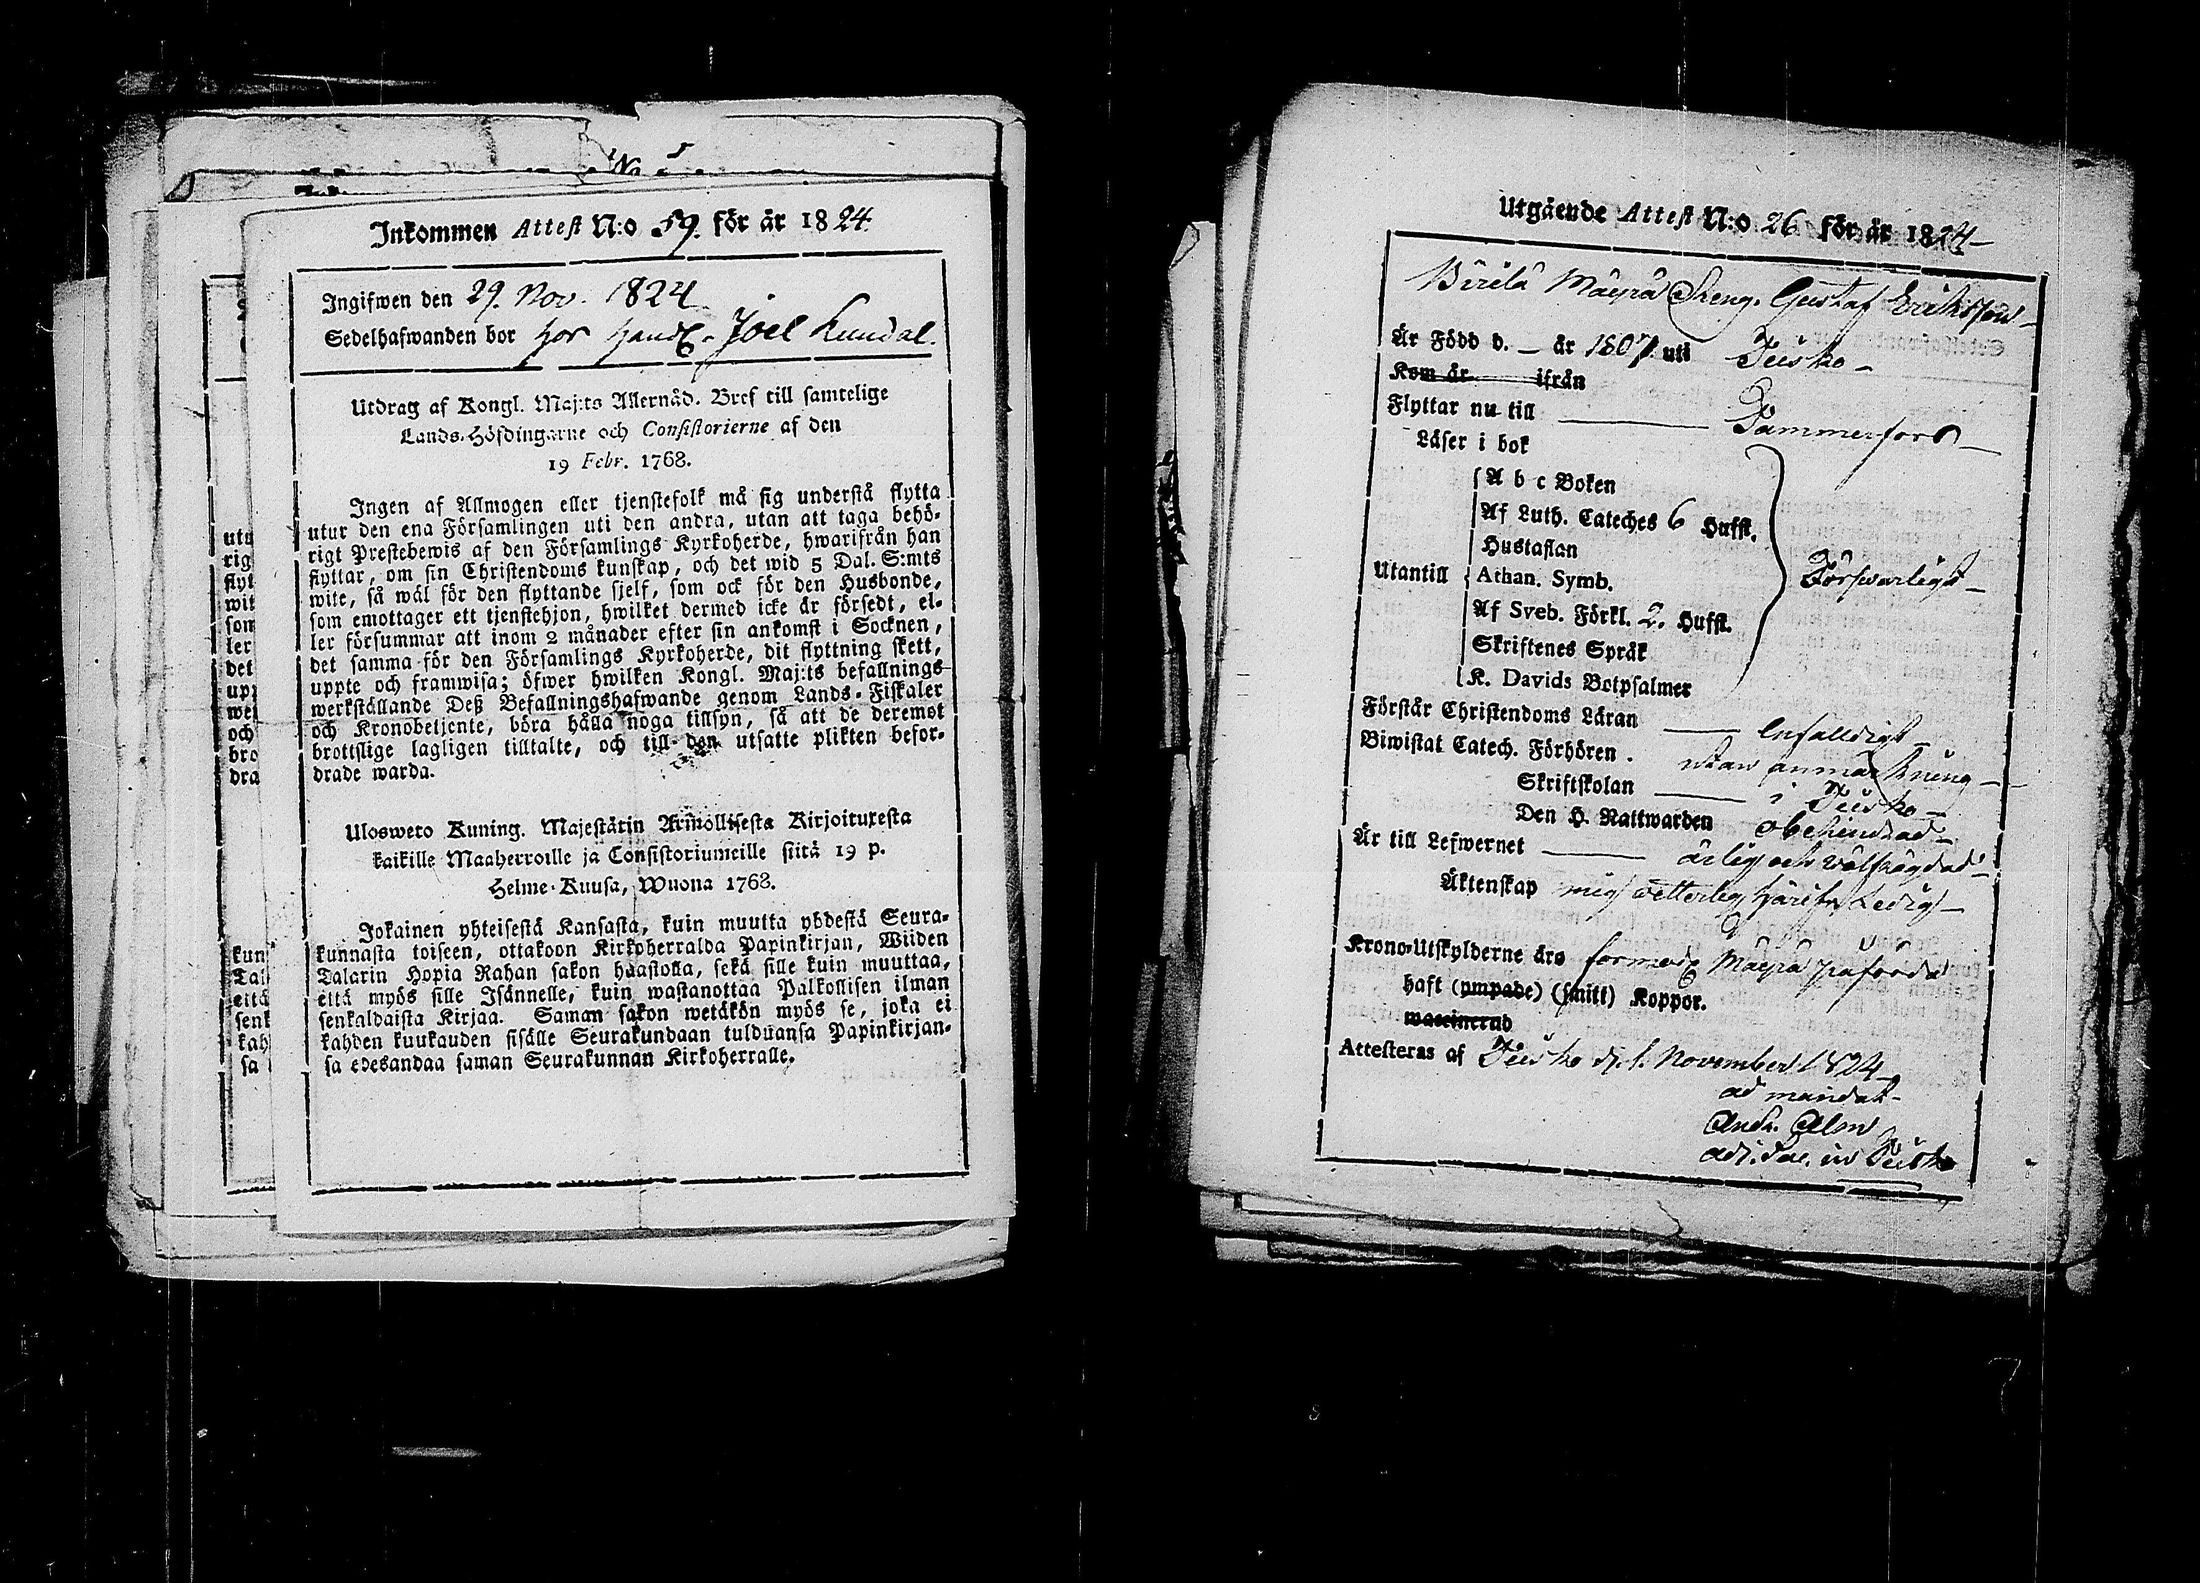 Inkommen Attest N:o 59. för år 1824.
Ingifwen den 29. Nov. 1824
Sedelhafwanden bor hos Handl. Joel Lundal.
Utdrag af Kongl. Maj:ts Allernåd. Bref till samtelige
Lands-Höfdingarne och Consistorierne af den
19 Febr. 1768.
Ingen af Allmogen eller tjenstefolk må sig understå flytta
utur den ena Församlingen uti den andra, utan att taga behö-
rigt Prestebewis af den Församlings Kyrkoherde, hwarifrån han
flyttar, om sin Christendoms kunskap, och det wid 5 Dal. S:mts
wite, så wäl för den flyttande sjelf, som ock för den Husbonde,
som emottager ett tjenstehjon, hwilket dermed icke är försedt, el-
ler försummar att inom 2 månader efter sin ankomst i Socknen,
det samma för den Församlings Kyrkoherde, dit flyttning skett,
uppte och framwisa; öfwer hwilken Kongl. Maj:ts befallnings
werkställande Deß Befallningshafwande genom Lands-Fiskaler
och Kronobetjente, böra hålla noga tillsyn, så att de deremot
brottslige lagligen tilltalte, och till den utsatte plikten befor-
drade warda.
Uloswето Kuning. Majestätin Armollisesta Kirjoituxesta
kaikille Maaherroille ja Consistoriumeille siitä 19 p.
Helme-Kuusa, Wuona 1768.
Jokainen yhteisestä Kansasta, kuin muutta yhdestä Seura-
kunnasta toiseen, ottakoon Kirkoherralda Papinkirjan, Wiiden
Talarin Hopia Rahan sakon haastolla, sekä sille kuin muuttaa,
että myös sille Isännelle, kuin wastanottaa Palkollisen ilman
senkaldaista Kirjaa. Saman sakon wetäkön myös se, joka ei
kahden kuukauden sisälle Seurakundaan tulduansa Papinkirjan-
sa edesandaa saman Seurakunnan Kirkoherralle.
Utgående Attest N:o 26 för år 1824
Mäyrä Dreng. Gustaf Eriksson
Är Född d. — år 1807. uti Teisko
Kom år ifrån
Flyttar nu till Tammerfors
Läser i bok
A b c Boken
Af Luth. Cateches 6 Hufst.
Hustaflan
Utantill Athan. Symb. Försvarligt
Af Sveb. Förkl. 2. Hufst.
Skriftenes Språk
K. Davids Botpsalmer
Förstår Christendoms Läran enfalldigt
Biwistat Catech. Förhören. utan anmärkning
Skriftskolan i Teisko
Den H. Nattwarden obehindrad
Är till Lefwernet ärlig och välfrägdad
Äktenskap mig vetterlig härifr. Ledig
Krono-Utskylderne äro Mäyrä påförda
haft (ympade) (smitt) Koppor.
waccinerad
Attesteras af Teisko d. 1. November 1824
ad mandat.
Andr. Alm
adj. Sac. in Teisko